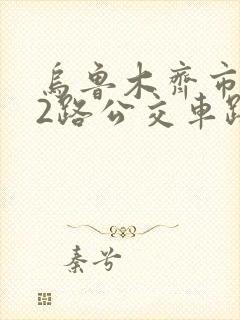 烏魯木齊市
2路公交車路
秦兮